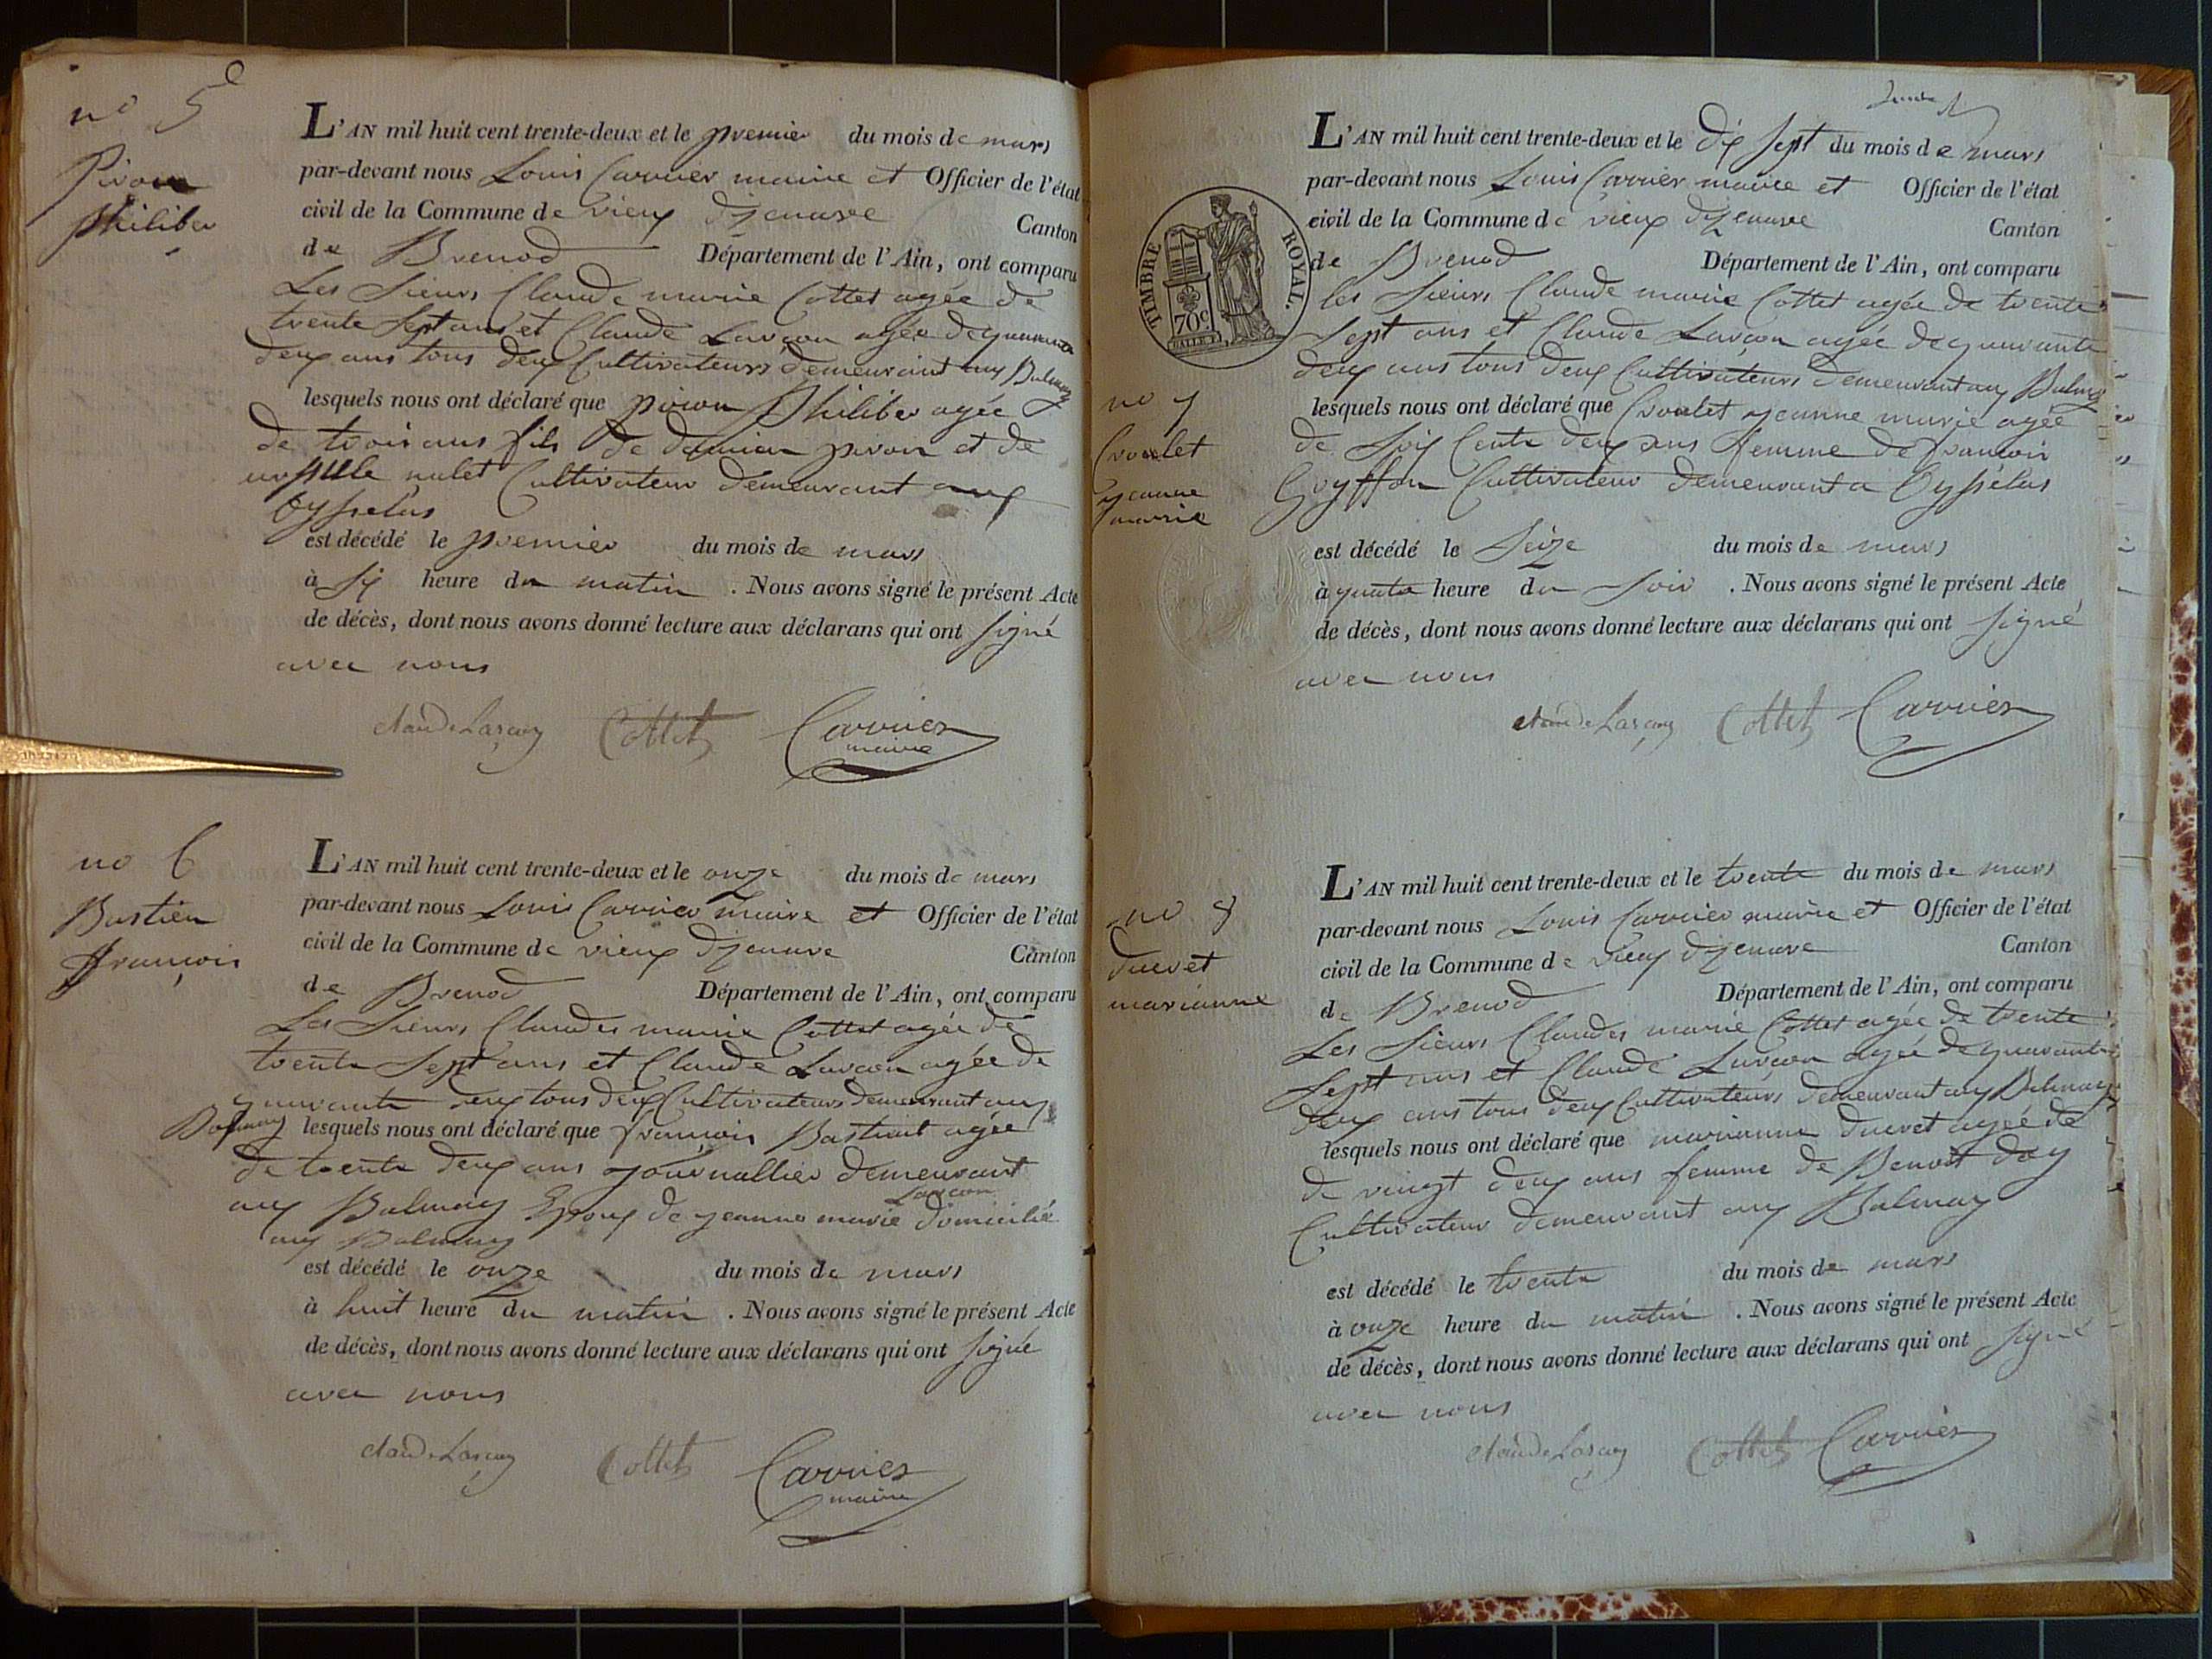 no 5
Piron
philiber
L'AN mil huit cent trente-deux et le premier du mois de mars
par-devant nous Louis Carrier maire et Officier de l'état
civil de la Commune de vieux dizenave Canton
de Brenod Département de l'Ain, ont comparu
Les Sieurs Claude marie Cottet agée de
trente Sept ans et Claude Lavçon agée de quarante
deux ans tous deux Cultivateurs demeurant aux Balmay
lesquels nous ont déclaré que piron Philiber agée
de trois ans fils de damien piron et de
urssule nulet Cultivateur demeurant aux
Oysselas
est décédé le premier du mois de mars
à six heure du matin . Nous avons signé le présent Acte
de décès, dont nous avons donné lecture aux déclarans qui ont signé
avec nous
claude Larçon Cottet Carrier
maire
no 6
Bastien
françois
L'AN mil huit cent trente-deux et le onze du mois de mars
par-devant nous Louis Carrier maire et Officier de l'état
civil de la Commune de vieux dizenave Canton
de Brenod Département de l'Ain, ont comparu
Les Sieurs Claudes marie Cottet agée de
trente Sept ans et Claude Lavçon agée de
quarante deux tous deux Cultivateurs demeurant aux
Balmay lesquels nous ont déclaré que françois Bastient agée
de trente deux ans journallier demeurant
aux Balmay Epoux de jeanne marie Larçon domiciliée
aux Balmay
est décédé le onze du mois de mars
à huit heure du matin . Nous avons signé le présent Acte
de décès, dont nous avons donné lecture aux déclarans qui ont signé
avec nous
claude Larçon Cottet Carrier
maire
L'AN mil huit cent trente-deux et le dix sept du mois de mars
par-devant nous Louis Carrier maire et Officier de l'état
civil de la Commune de vieux dizenave Canton
TIMBRE ROYAL.
70c
de Brenod Département de l'Ain, ont comparu
les Sieurs Claude marie Cottet agée de trente
Sept ans et Claude Lavçon agée de quarante
deux ans tous deux Cultivateurs demeurant aux Balmay
no 7
Crouelet
jeanne
marie
lesquels nous ont déclaré que Crouelet jeanne marie agée
de soixante deux ans femme de françois
Goyffon Cultivateur demeurant a Oysselas
est décédé le Seize du mois de mars
à quatre heure du soir . Nous avons signé le présent Acte
de décès, dont nous avons donné lecture aux déclarans qui ont signé
avec nous
claude Larçon Cottet Carrier
no 8
ducret
marianne
L'AN mil huit cent trente-deux et le trente du mois de mars
par-devant nous Louis Carrier maire et Officier de l'état
civil de la Commune de vieux dizenave Canton
de Brenod Département de l'Ain, ont comparu
Les Sieurs Claudes marie Cottet agée de trente
Sept ans et Claude Lavçon agée de quarante
deux ans tous deux Cultivateurs demeurant aux Balmay
lesquels nous ont déclaré que marianne ducret agée de
de vingt deux ans femme de Benoit doy
Cultivateur demeurant aux Balmay
est décédé le trente du mois de mars
à onze heure du matin . Nous avons signé le présent Acte
de décès, dont nous avons donné lecture aux déclarans qui ont signé
avec nous
claude Larçon Cottet Carrier